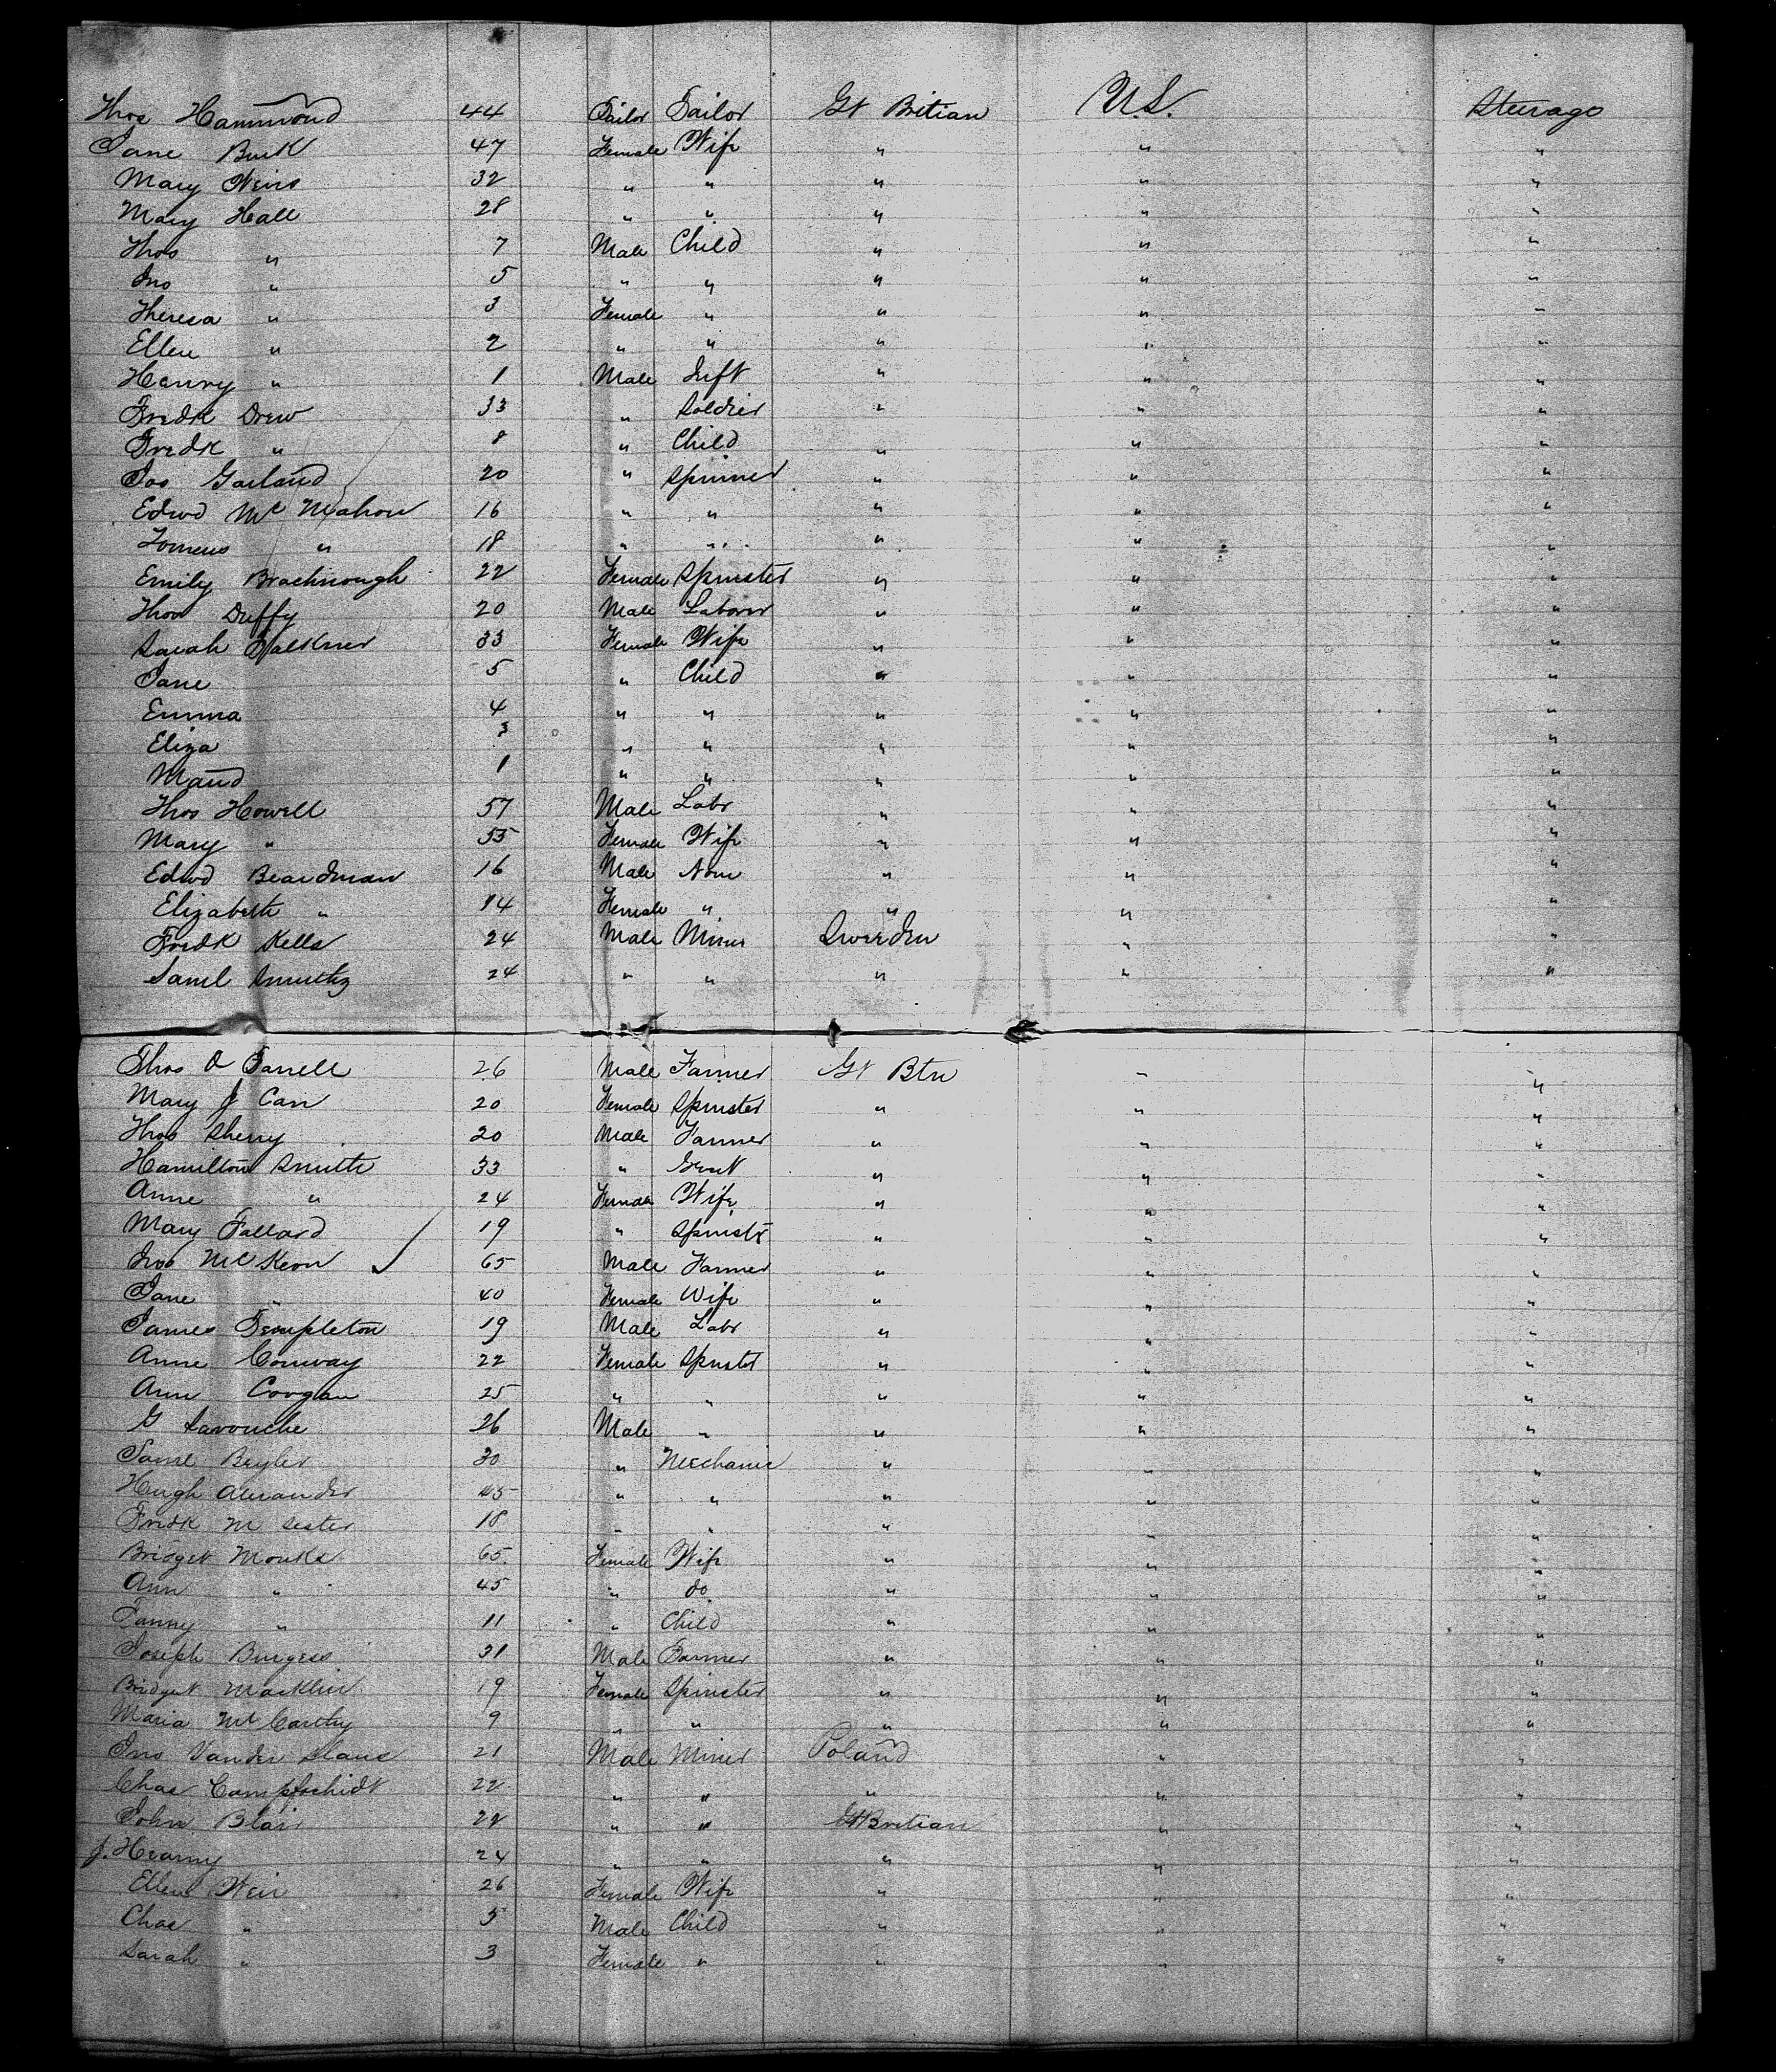 Thos Hammond 44 Sailor Sailor Gt Britian U.S. Steerage
Jane Burk 47 Female Wife " " "
Mary Weirs 32 " " " " "
Mary Hall 28 " " " " "
Thos " 7 Male Child " " "
Jno " 5 " " " " "
Theresa " 3 Female " " " "
Ellen " 2 " " " " "
Henry " 1 Male Inft " " "
Fredk Drew 33 " Soldier " " "
Fredk " 8 " Child " " "
Jas Garland 20 " Spinner " " "
Edwd Mc Mahon 16 " " " " "
" 18 " " " " "
Emily 22 Female Spinster " " "
Thos Duffy 20 Male Laborer " " "
Sarah Falkner 33 Female Wife " " "
Jane 5 " Child " " "
Emma 4 " " " " "
Eliza 3 " " " " "
Maud 1 " " " " "
Thos Howell 57 Male Labr " " "
Mary " 55 Female Wife " " "
Edwd Beardman 16 Male None " " "
Elizabeth " 14 Female " " " "
Fredk Kells 24 Male Miner Sweden " "
Saml 24 " " " " "
Thos O Farrell 26 Male Farmer Gt Btn " "
Mary J Carr 20 Female Spinster " " "
Thos Sherry 20 Male Farmer " " "
Hamilton Smith 33 " Gent " " "
Anne " 24 Female Wife " " "
Mary Fallard 19 " Spinstr " " "
Jno McKeon 65 Male Farmer " " "
Jane " 40 Female Wife " " "
James Templeton 19 Male Labr " " "
Anne Conway 22 Female Spnstr " " "
Ann Coogan 25 " " " " "
G Lavouche 26 Male " " " "
Saml Beyler 30 " Mechanic " " "
Hugh Alexander 45 " " " " "
Fredk M Lester 18 " " " " "
Bridget Monks 65 Female Wife " " "
Ann " 45 " do " " "
Fanny " 11 " Child " " "
Joseph Burgess 31 Male Farmer " " "
Bridget Macklin 19 Female Spinster " " "
Maria McCarthy 9 " " " " "
Jno Vander Slaus 21 Male Miner Poland " "
Chas 22 " " " " "
John Blair 22 " " Gt Britian " "
J. Hearny 24 " " " " "
Ellen Weir 26 Female Wife " " "
Chas " 5 Male Child " " "
Sarah " 3 Female " " " "